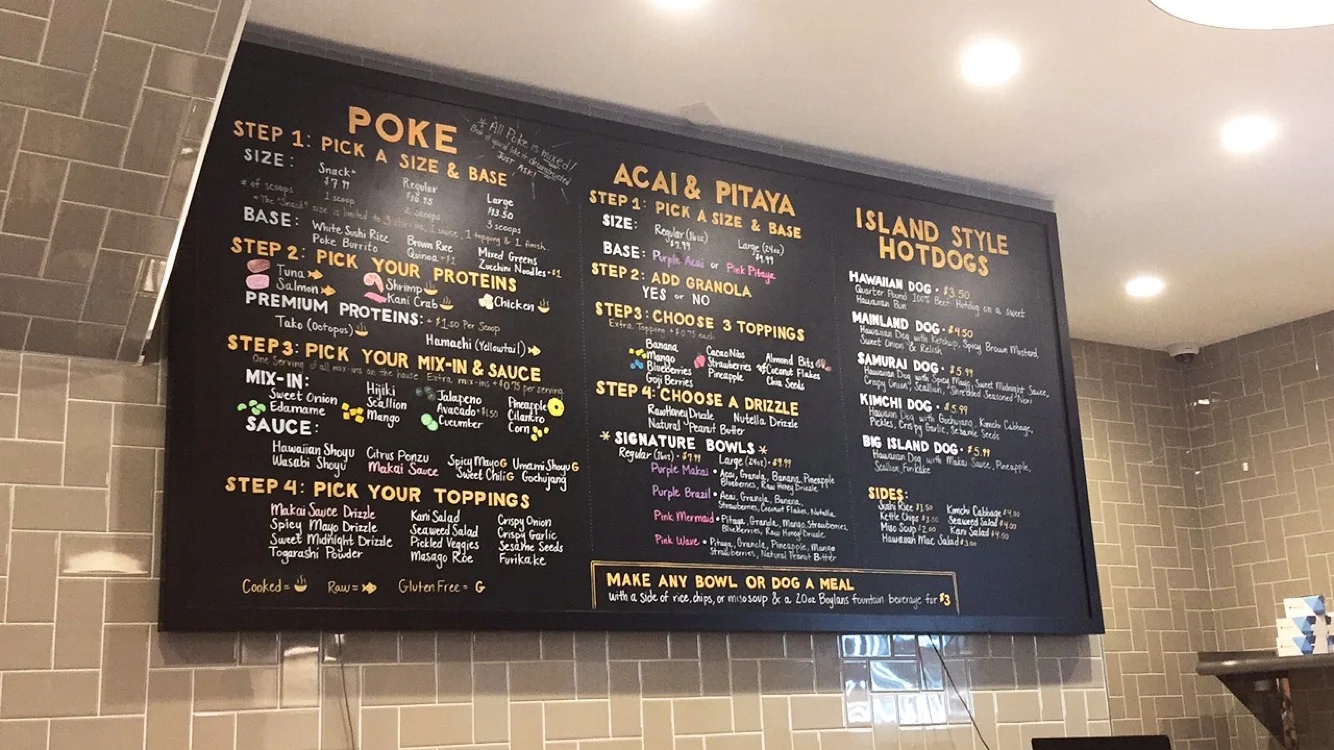 POKE
* All Poke is mixed!
JUST ASK!
STEP 1: PICK A SIZE & BASE
SIZE: Snack* Regular Large
$13.50
# of scoops 1 scoop 2 scoops 3 scoops
*The "Snack" size is limited to 3 mix-ins, 1 sauce, 1 topping & 1 finish.
BASE: White Sushi Rice Brown Rice Mixed Greens
Poke Burrito Quinoa +$1 Zucchini Noodles +$1
STEP 2: PICK YOUR PROTEINS
Tuna Shrimp Chicken
Salmon Kani Crab
PREMIUM PROTEINS: +$1.50 Per Scoop
Tako (Octopus) Hamachi (Yellowtail)
STEP 3: PICK YOUR MIX-IN & SAUCE
One Serving of all mix-ins on the house. Extra mix-ins +$0.75 per serving
MIX-IN: Hijiki Jalapeno Pineapple
Sweet Onion Scallion Avocado +$1.50 Cilantro
Edamame Mango Cucumber Corn
SAUCE:
Hawaiian Shoyu Citrus Ponzu Spicy Mayo G Umami Shoyu G
Wasabi Shoyu Makai Sauce Sweet Chili G Gochujang
STEP 4: PICK YOUR TOPPINGS
Makai Sauce Drizzle Kani Salad Crispy Onion
Spicy Mayo Drizzle Seaweed Salad Crispy Garlic
Sweet Midnight Drizzle Pickled Veggies Sesame Seeds
Togarashi Powder Masago Roe Furikake
Cooked = Raw = Gluten Free = G
ACAI & PITAYA
STEP 1: PICK A SIZE & BASE
SIZE: Regular (16oz) Large (24oz)
$7.99 $9.99
BASE: Purple Acai or Pink Pitaya
STEP 2: ADD GRANOLA
YES or NO
STEP 3: CHOOSE 3 TOPPINGS
Extra Topping +$0.75 each
Banana Cacao Nibs Almond Bits
Mango Strawberries Coconut Flakes
Blueberries Pineapple Chia Seeds
Goji Berries
STEP 4: CHOOSE A DRIZZLE
Raw Honey Drizzle Nutella Drizzle
Natural Peanut Butter
* SIGNATURE BOWLS *
Regular (16oz) • $7.99 Large (24oz) • $9.99
Purple Makai • Acai, Granola, Banana, Pineapple
Blueberries, Raw Honey Drizzle
Purple Brazil • Acai, Granola, Banana,
Strawberries, Coconut Flakes, Nutella
Pink Mermaid • Pitaya, Granola, Mango, Strawberries,
Blueberries, Raw Honey Drizzle
Pink Wave • Pitaya, Granola, Pineapple, Mango
Strawberries, Natural Peanut Butter
ISLAND STYLE
HOTDOGS
HAWAIIAN DOG • $3.50
Quarter Pound 100% Beef Hotdog on a sweet
Hawaiian Bun
MAINLAND DOG • $4.50
Hawaiian Dog with Ketchup, Spicy Brown Mustard,
Sweet Onion & Relish
SAMURAI DOG • $5.99
Hawaiian Dog with Spicy Mayo, Sweet Midnight Sauce,
Crispy Onion, Scallion, Shredded Seasoned Nori
KIMCHI DOG • $5.99
Hawaiian Dog with Gochujang, Kimchi Cabbage,
Pickles, Crispy Garlic, Sesame Seeds
BIG ISLAND DOG • $5.99
Hawaiian Dog with Makai Sauce, Pineapple,
Scallion, Furikake
SIDES:
Sushi Rice $1.50 Kimchi Cabbage $4.00
Kettle Chips $1.50 Seaweed Salad $4.00
Miso Soup $2.00 Kani Salad $4.00
Hawaiian Mac Salad $3.00
MAKE ANY BOWL OR DOG A MEAL
with a side of rice, chips, or miso soup & a 20oz Boylans fountain beverage for $3